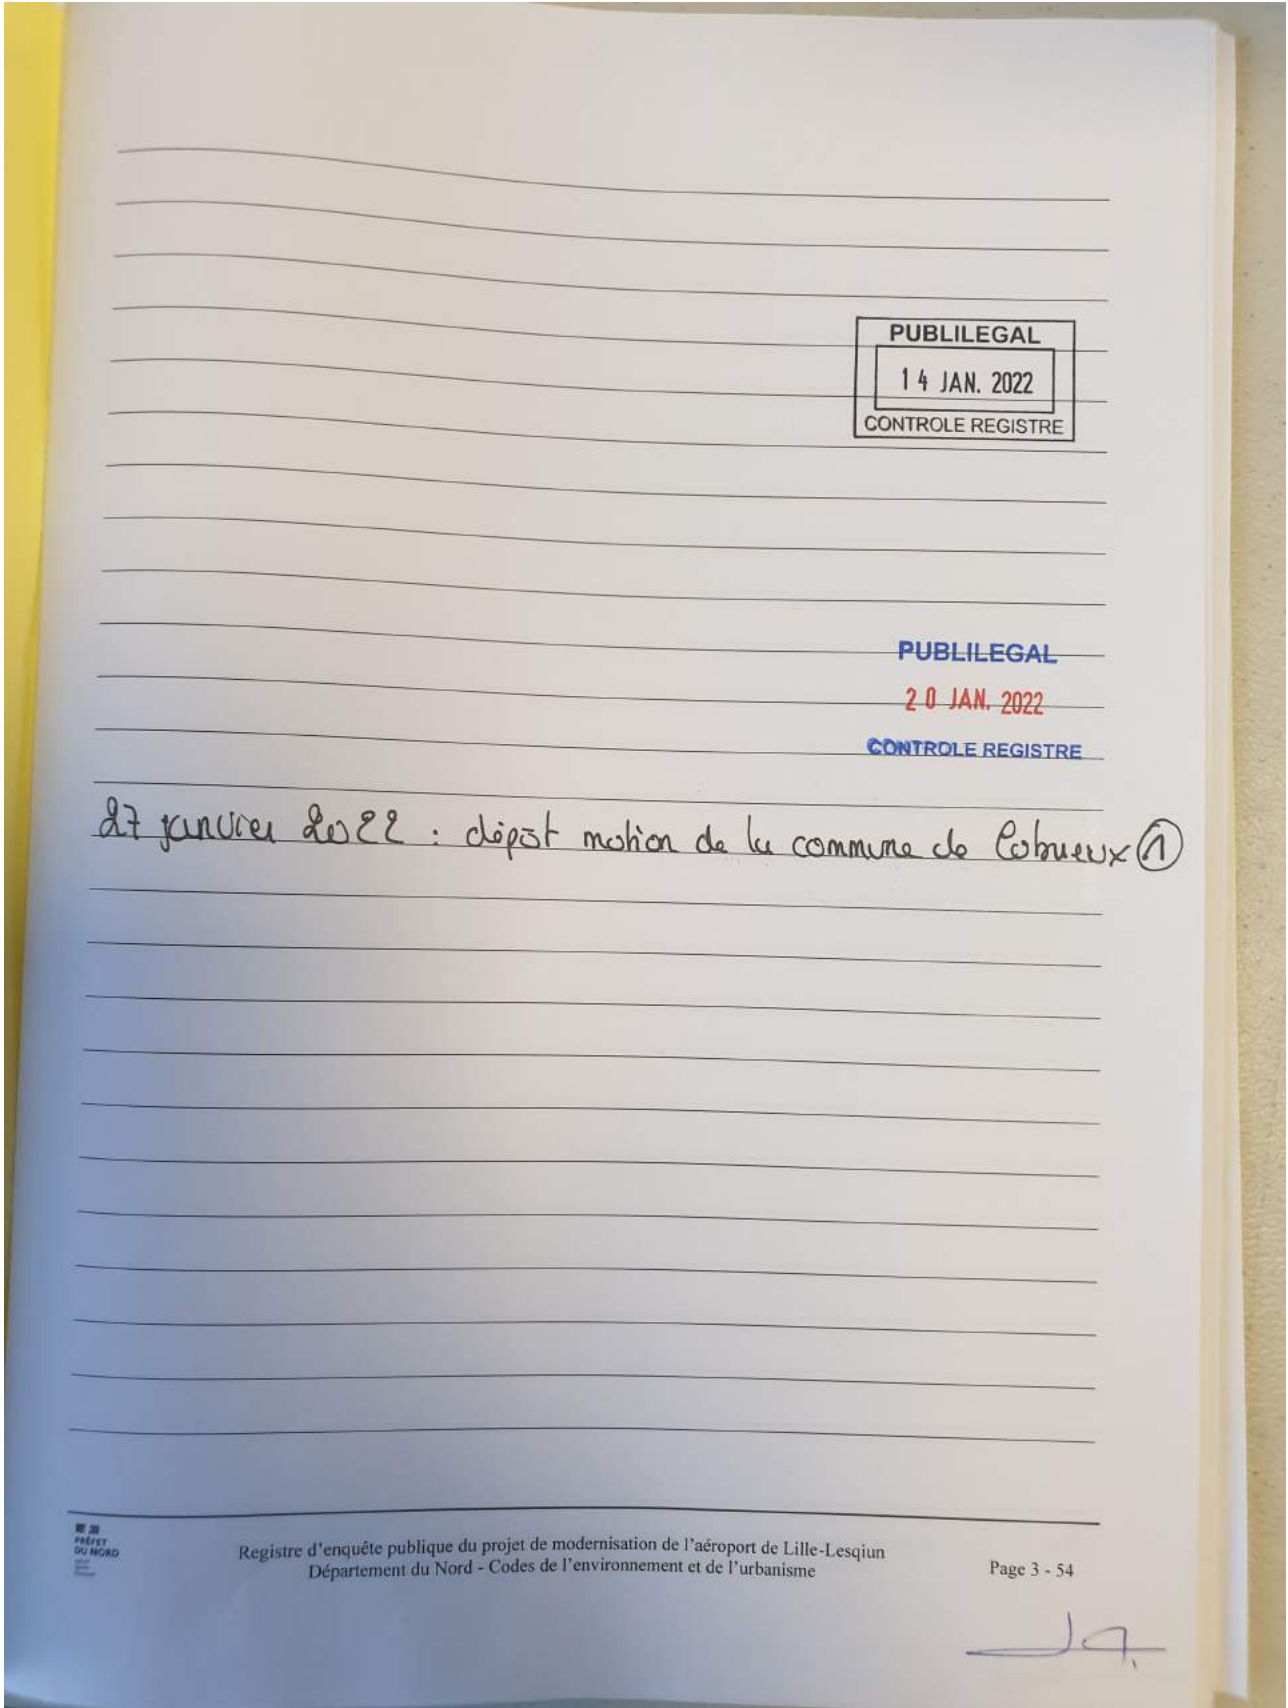 PUBLILEGAL
14 JAN. 2022
CONTROLE REGISTRE
PUBLILEGAL
20 JAN. 2022
CONTROLE REGISTRE
27 janvier 2022 : dépôt motion de la commune de Cobrieux ①
PRÉFET
DU NORD
Registre d'enquête publique du projet de modernisation de l'aéroport de Lille-Lesqiun
Département du Nord - Codes de l'environnement et de l'urbanisme
Page 3 - 54